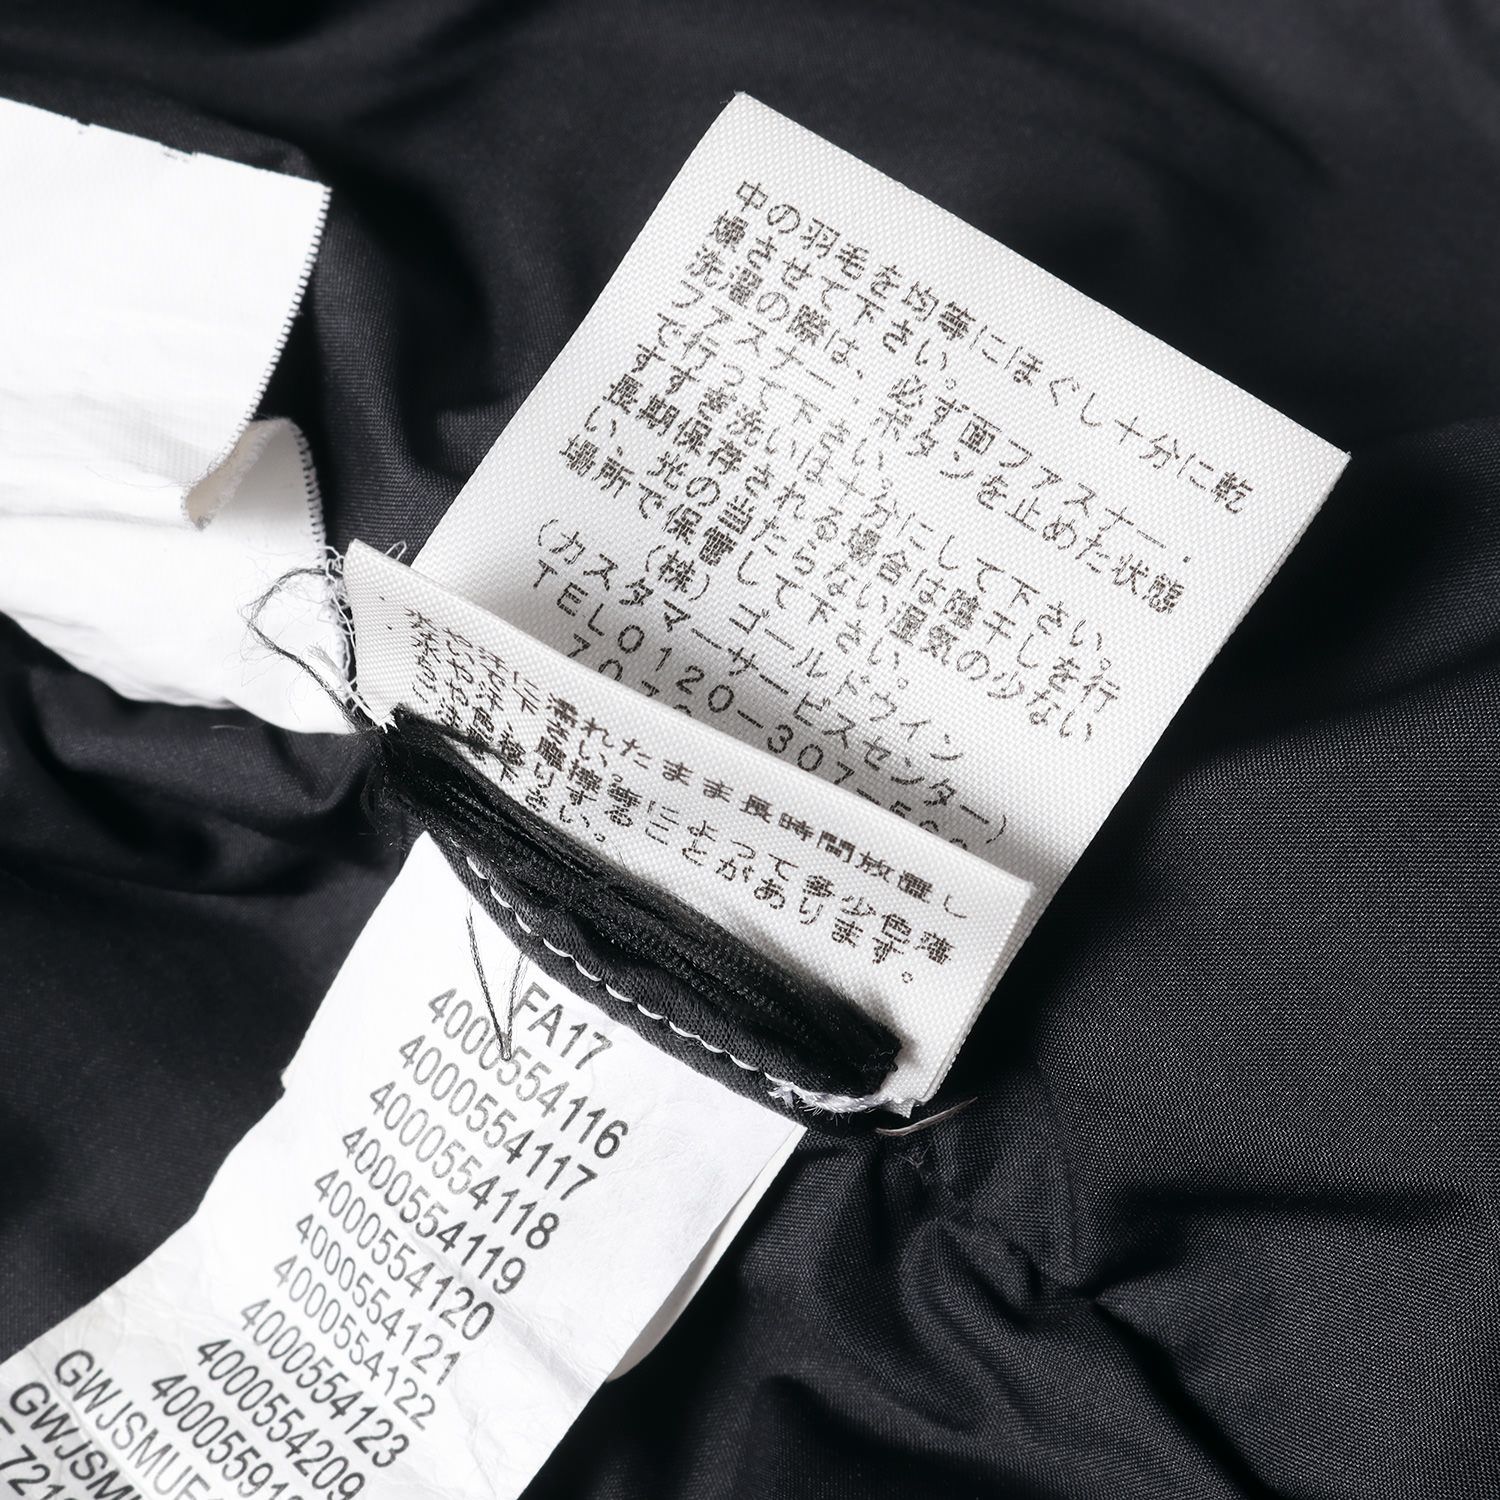 中の羽毛を均等にほぐし十分に乾
燥させて下さい。
洗濯の際は、必ず面ファスナー・
ファスナー、ボタンを止めた状態
で行って下さい。
すすぎ洗いは十分にして下さい。
長期保存される場合は陰干しを行
い、光の当たらない湿気の少ない
場所で保管して下さい。
(株)ゴールドウイン
(カスタマーサービスセンター)
TEL0120-307-560
に濡れたまま長時間放置し
下さい。
摩擦等によって多少色落
移りすることがあります。
下さい。
FA17
4000554116
4000554117
4000554118
4000554119
4000554120
4000554121
4000554122
4000554123
4000554209
400055919
GWJSMUF
GWJSM
721